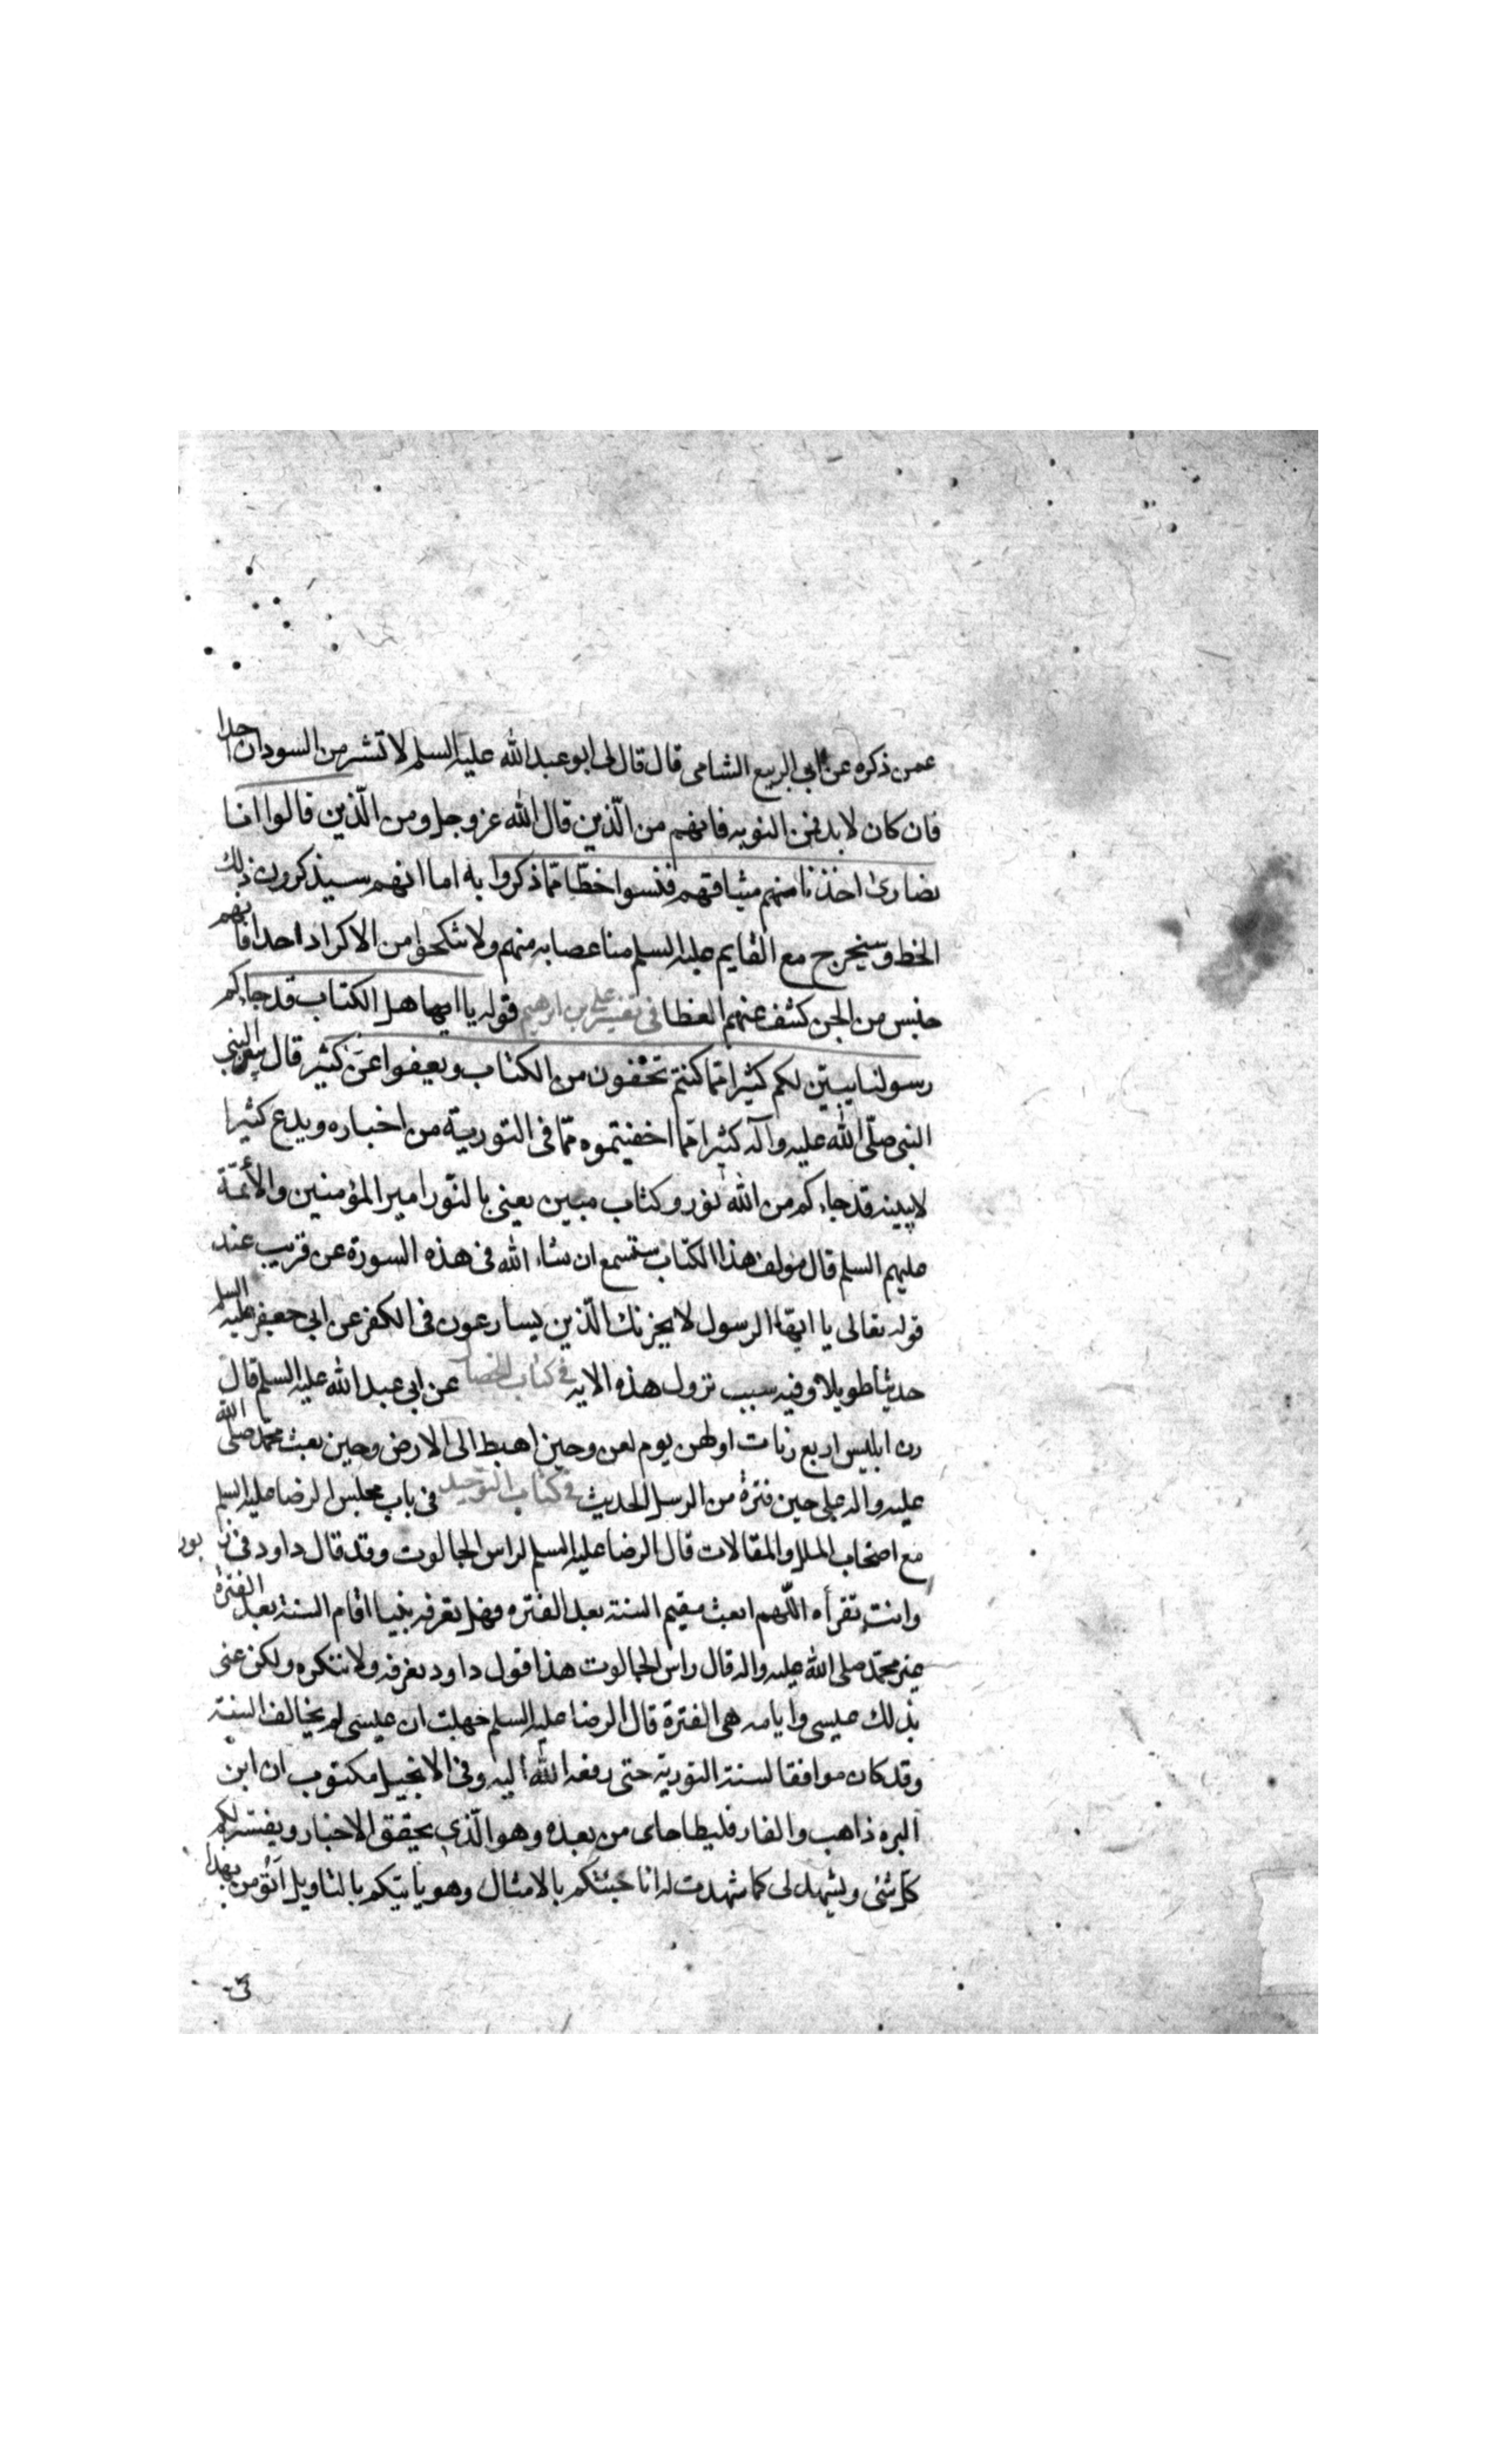 عمن ذكره عن ابى الربيع الشامى قال قال لى ابو عبد الله عليه السلم لا تشتر من السودان احدا
فان كان لا بد فمن النوبه فانهم من الّذين قال الله عز وجل ومن الّذين قالوا انا
نصارى اخذنا منهم ميثاقهم فنسوا حظّا ممّا ذكروا به اما انهم سيذكرون ذلك
الحظ وسيخرج مع القايم عليه السلم منا عصابه منهم ولا تنكحوا من الاكراد احدا فانهم
جنس من الجن كشف عنهم الغطا فى تفسير على بن ابرهيم قوله يا ايها هل الكتاب قد جاءكم
رسولنا يبيّن لكم كثيرا ممّا كنتم تخفون من الكتاب ويعفوا عن كثير قال يبين النبى
النبى صلّى الله عليه وآله كثيرا ممّا اخفيتموه ممّا فى التورية من اخباره ويدع كثيرا
لا يبينه قد جاءكم من الله نور وكتاب مبين يعنى بالنّور امير المؤمنين والأئمّة
عليهم السلم قال مؤلف هذا الكتاب ستسمع ان شاء الله فى هذه السورة عن قريب عند
قوله تعالى يا ايها الرسول لا يحزنك الّذين يسارعون فى الكفر عن ابى جعفر عليه السلم
حديثا طويلا وفيه سبب نزول هذه الايه فى كتاب الخصال عن ابى عبد الله عليه السلم قال
رن ابليس اربع رنات اولهن يوم لعن وحين اهبط الى الارض وحين بعث محمّد صلى الله
عليه واله على حين فترة من الرسل الحديث فى كتاب التوحيد فى باب مجلس الرضا عليه السلم
مع اصحاب الملل والمقالات قال الرضا عليه السلم لراس الجالوت وقد قال داود فى زبور
وانت تقرأه اللّهم ابعث مقيم السنة بعد الفتره فهل تعرف نبيا اقام السنة بعد الفترة
غير محمّد صلى الله عليه واله قال راس الجالوت هذا قول داود نعرفه ولا ننكره ولكن عنى
بذلك عيسى وايامه هى الفترة قال الرضا عليه السلم جهلت ان عيسى لم يخالف السنة
وقد كان موافقا لسنة التورية حتى رفعه الله اليه وفى الانجيل مكتوب ان ابن
البره ذاهب والفار فليطا جاى من بعده وهو الّذى يحقق الاخبار ويفسّر لكم
كل شئى ويشهد لى كما شهدت له انا جئتكم بالامثال وهو ياتيكم بالتاويل اتؤمن بهذا